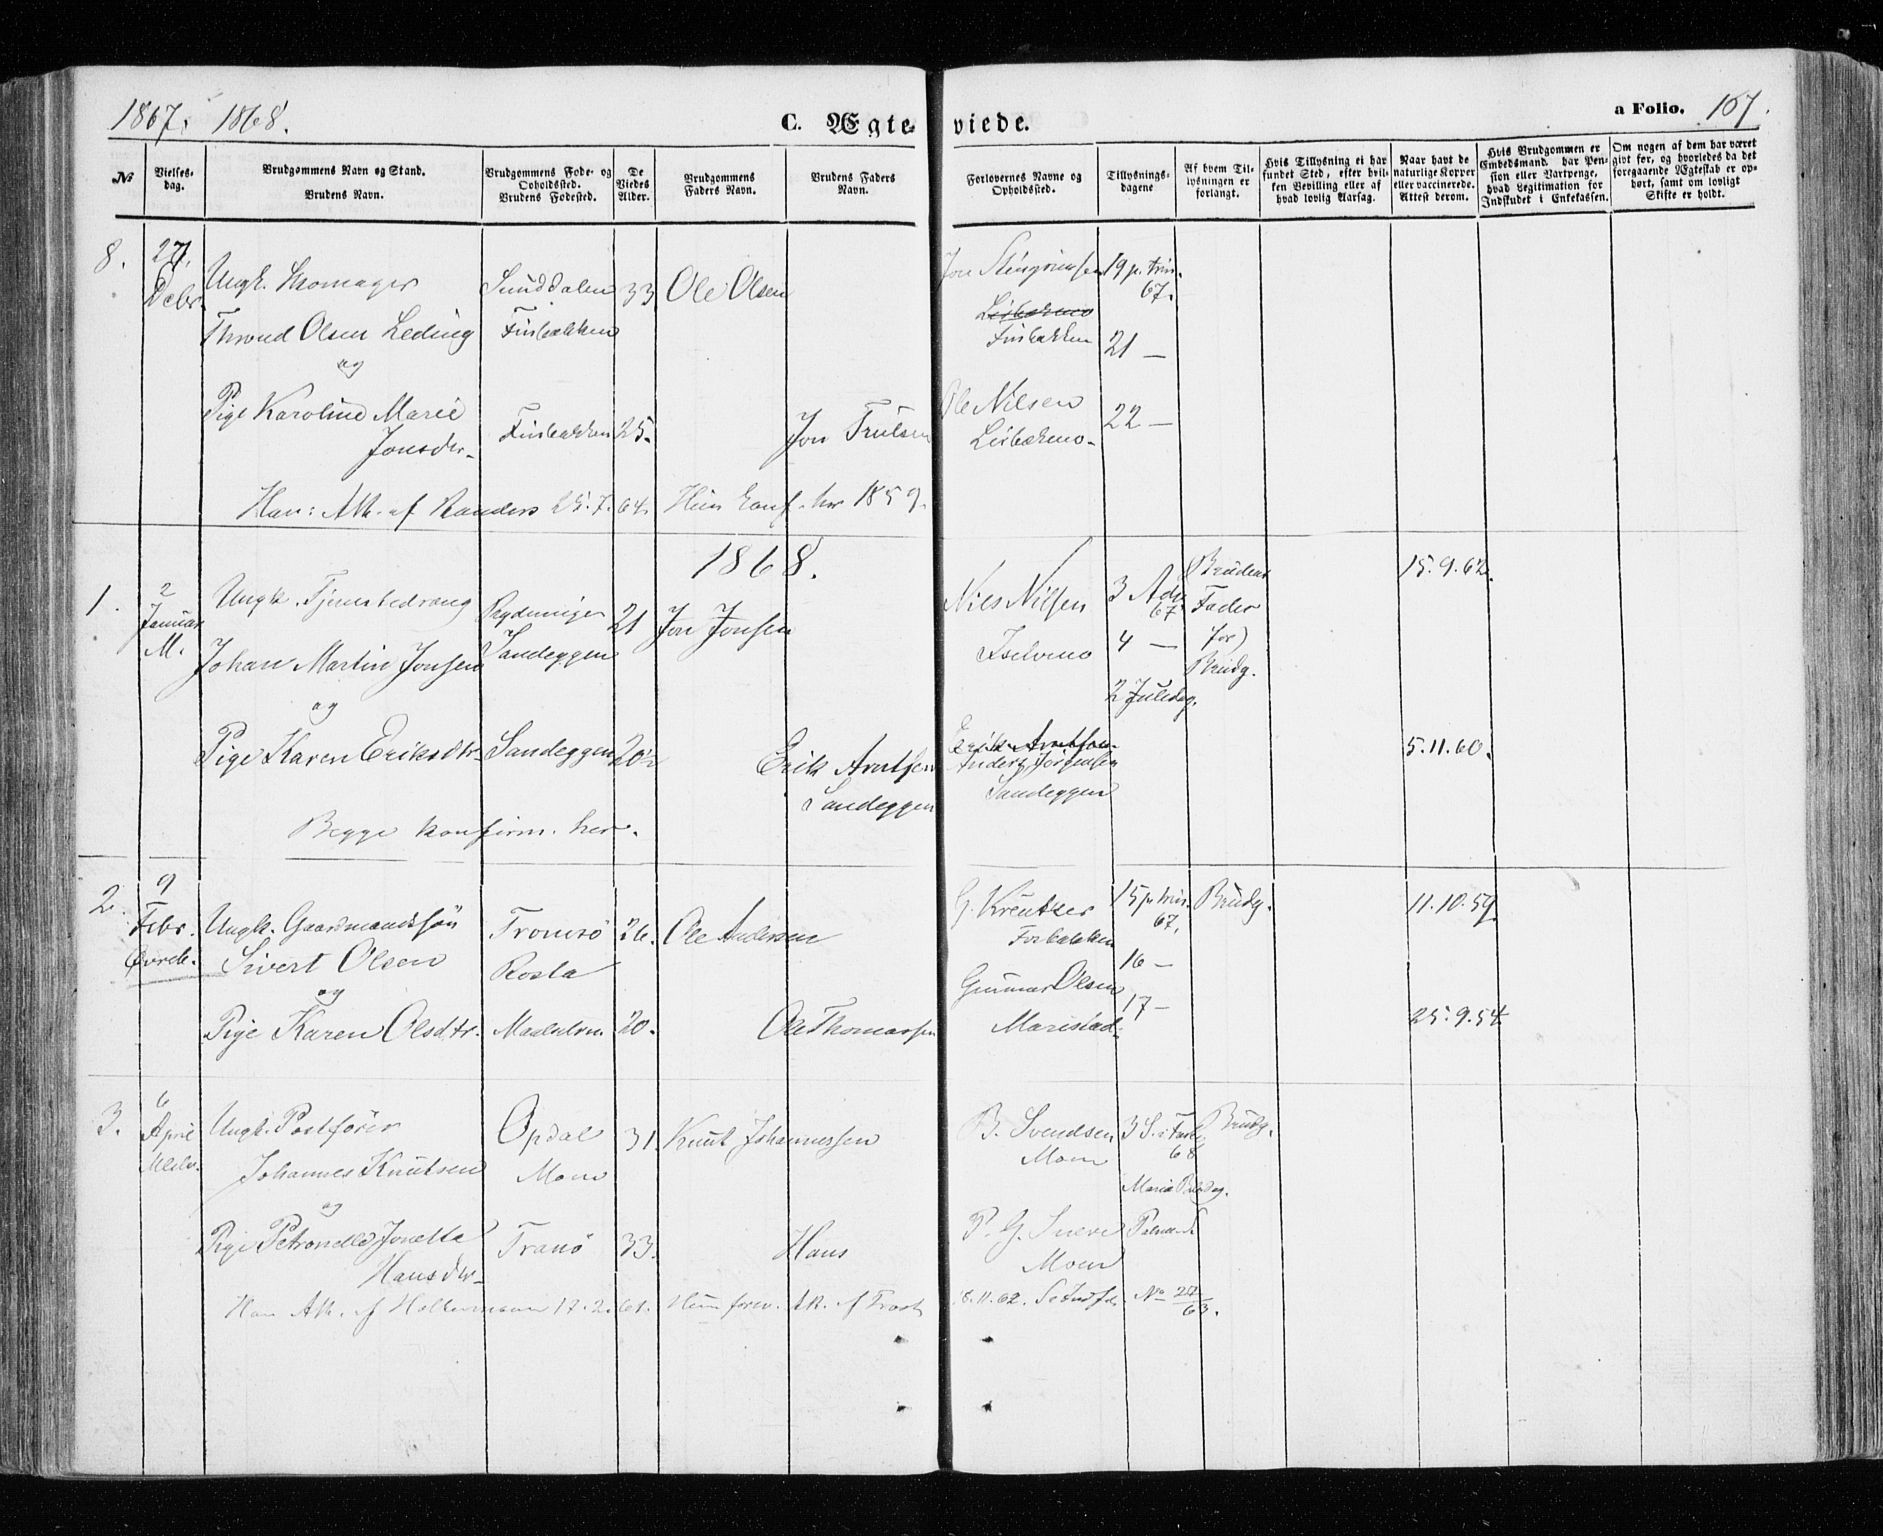 1867. 1868.
C. Ægteviede.
a Folio. 107.
№
Vielsesdag.
Brudgommens Navn og Stand.
Brudens Navn.
Brudgommens Føde- og Opholdssted.
Brudens Fødested.
De Viedes Alder.
Brudgommens Faders Navn.
Brudens Faders Navn.
Forlovernes Navne og Opholdssted.
Tillysnings-dagene
Af hvem Tillysningen er forlangt.
Hvis Tillysning ei har fundet Sted, efter hvilken Bevilling eller af hvad lovlig Aarsag.
Naar havt de naturlige Kopper eller vaccinerede. Attest derom.
Hvis Brudgommen er Embedsmand, har Pension eller Vartpenge, hvad Legitimation for Indskudet i Enkekassen.
Om nogen af dem har været givt før, og hvorledes da det foregaaende Ægteskab er ophørt, samt om lovligt Skifte er holdt.
8.
27. Debr.
Ungk. Skomager
Sunddalen 33 Ole Olsen
19 p. trin. 67.
Throud Olsen Leding
Finbakken
Finbakken 21 —
og
Pige Karoline Marie
Jonsdtr.
Finbakken 25.
Jon Trulsen
Ole Nilsen
22 —
Han: Att. af Randers 25.7.64. Hun konf. her 1859.
1868.
1.
2 Januar M.
Ungk.
21 Jon Jonsen
Nils Nilsen
3 Adv. 67.
Brudens Fader for) Brudg.
15.9.62.
Johan Martin Jonsen
Sandeggen
4 —
2 Juledag.
og
Pige Karen Eriksdtr. Sandeggen 20½
Erik Arntsen
Sandeggen
Erik Arntsen
Anders Jörgensen
Sandeggen
5.11.60.
Begge konfirm. her.
2.
9 Febr. Øvreb.
Ungk. Gaardmandssøn
Sivert Olsen
Tromsø
Rosta
26. Ole Andersen
G. Kreutzer
15 p. trin. 67.
Brudg.
11.10.59
16 —
og
Gunnar Olsen
Maristad.
17 —
Pige Karen Olsdtr. Maalselven 20.
Ole Thomassen
25.9.54
3.
6 April
Ungk. Postfører
Johannes Knutsen
Opdal
Moen
31. Knut Johannessen
B. Svendsen
Moen
3 S. i Faste 68
Brudg.
Maria Bud.dag.
og
Pige Petronelle Jonetta
Hansdtr.
Tranø 33.
Hans
P. G.
Moen
Han Att. af 17.2.61. Hun forev. Att. af 8.11.62. No 22/63.